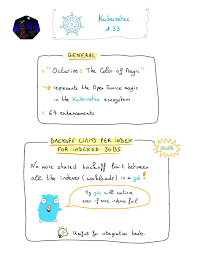 Kubernetes
1.33
GENERAL
"Octarine: The Color of Magic"
represents the Open Source magic
in the Kubernetes ecosystem
64 enhancements
BACKOFF LIMITS PER INDEX
FOR INDEXED JOBS
Stable
No more shared backoff limit between
all the indexes (workloads) in a job!
My job will continue
even if some indexes fail
Useful for integration tests.